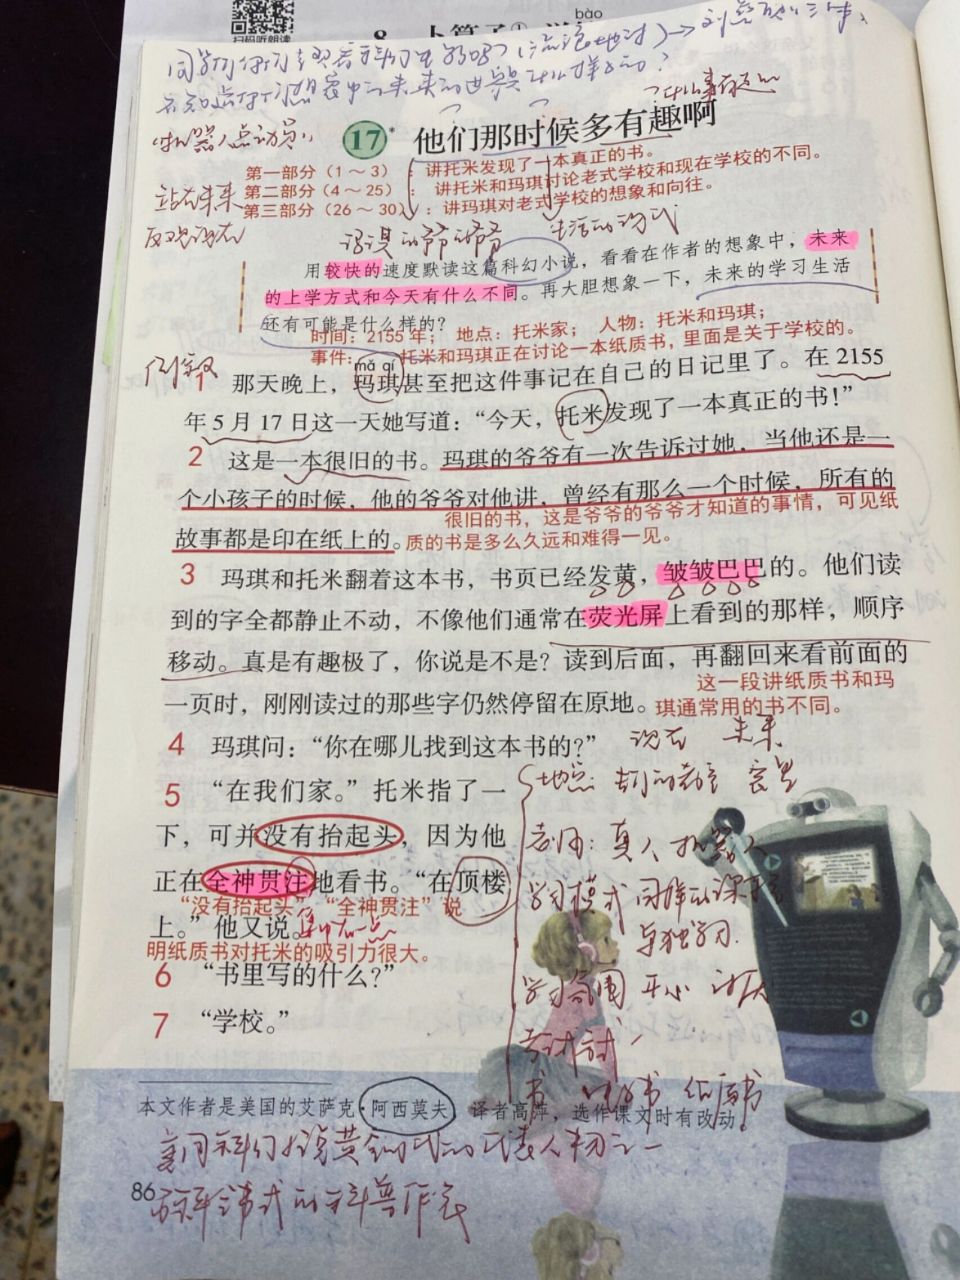 扫码听朗读
bào
他们那时候多有趣啊
17*
机器人总动员
第一部分（1～3）：讲托米发现了一本真正的书。
第二部分（4～25）：讲托米和玛琪讨论老式学校和现在学校的不同。
第三部分（26～30）：讲玛琪对老式学校的想象和向往。
站在未来
玛琪的爷爷的爷爷
生活的方式
用较快的速度默读这篇科幻小说，看看在作者的想象中，未来
的上学方式和今天有什么不同。再大胆想象一下，未来的学习生活
还有可能是什么样的？
时间：2155年； 地点：托米家； 人物：托米和玛琪；
事件： 托米和玛琪正在讨论一本纸质书，里面是关于学校的。
倒叙
mǎ qí
1 那天晚上，玛琪甚至把这件事记在自己的日记里了。在2155
年5月17日这一天她写道：“今天，托米发现了一本真正的书！”
2 这是一本很旧的书。玛琪的爷爷有一次告诉过她，当他还是一
个小孩子的时候，他的爷爷对他讲，曾经有那么一个时候，所有的
故事都是印在纸上的。
很旧的书，这是爷爷的爷爷才知道的事情，可见纸
质的书是多么久远和难得一见。
3 玛琪和托米翻着这本书，书页已经发黄，皱皱巴巴的。他们读
到的字全都静止不动，不像他们通常在荧光屏上看到的那样，顺序
移动。真是有趣极了，你说是不是？读到后面，再翻回来看前面的
一页时，刚刚读过的那些字仍然停留在原地。
这一段讲纸质书和玛
琪通常用的书不同。
4 玛琪问：“你在哪儿找到这本书的？”
现在 未来
5 “在我们家。”托米指了一
下，可并没有抬起头，因为他
正在全神贯注地看书。“在顶楼
上。”他又说。
“没有抬起头”“全神贯注”说
明纸质书对托米的吸引力很大。
6 “书里写的什么？”
7 “学校。”
老师：真人 机器人
学习模式 同样的课程
单独学习
学习氛围
书 电子书 纸质书
本文作者是美国的艾萨克·阿西莫夫，译者高萍，选作课文时有改动。
美国科幻小说黄金时代的代表人物之一
86